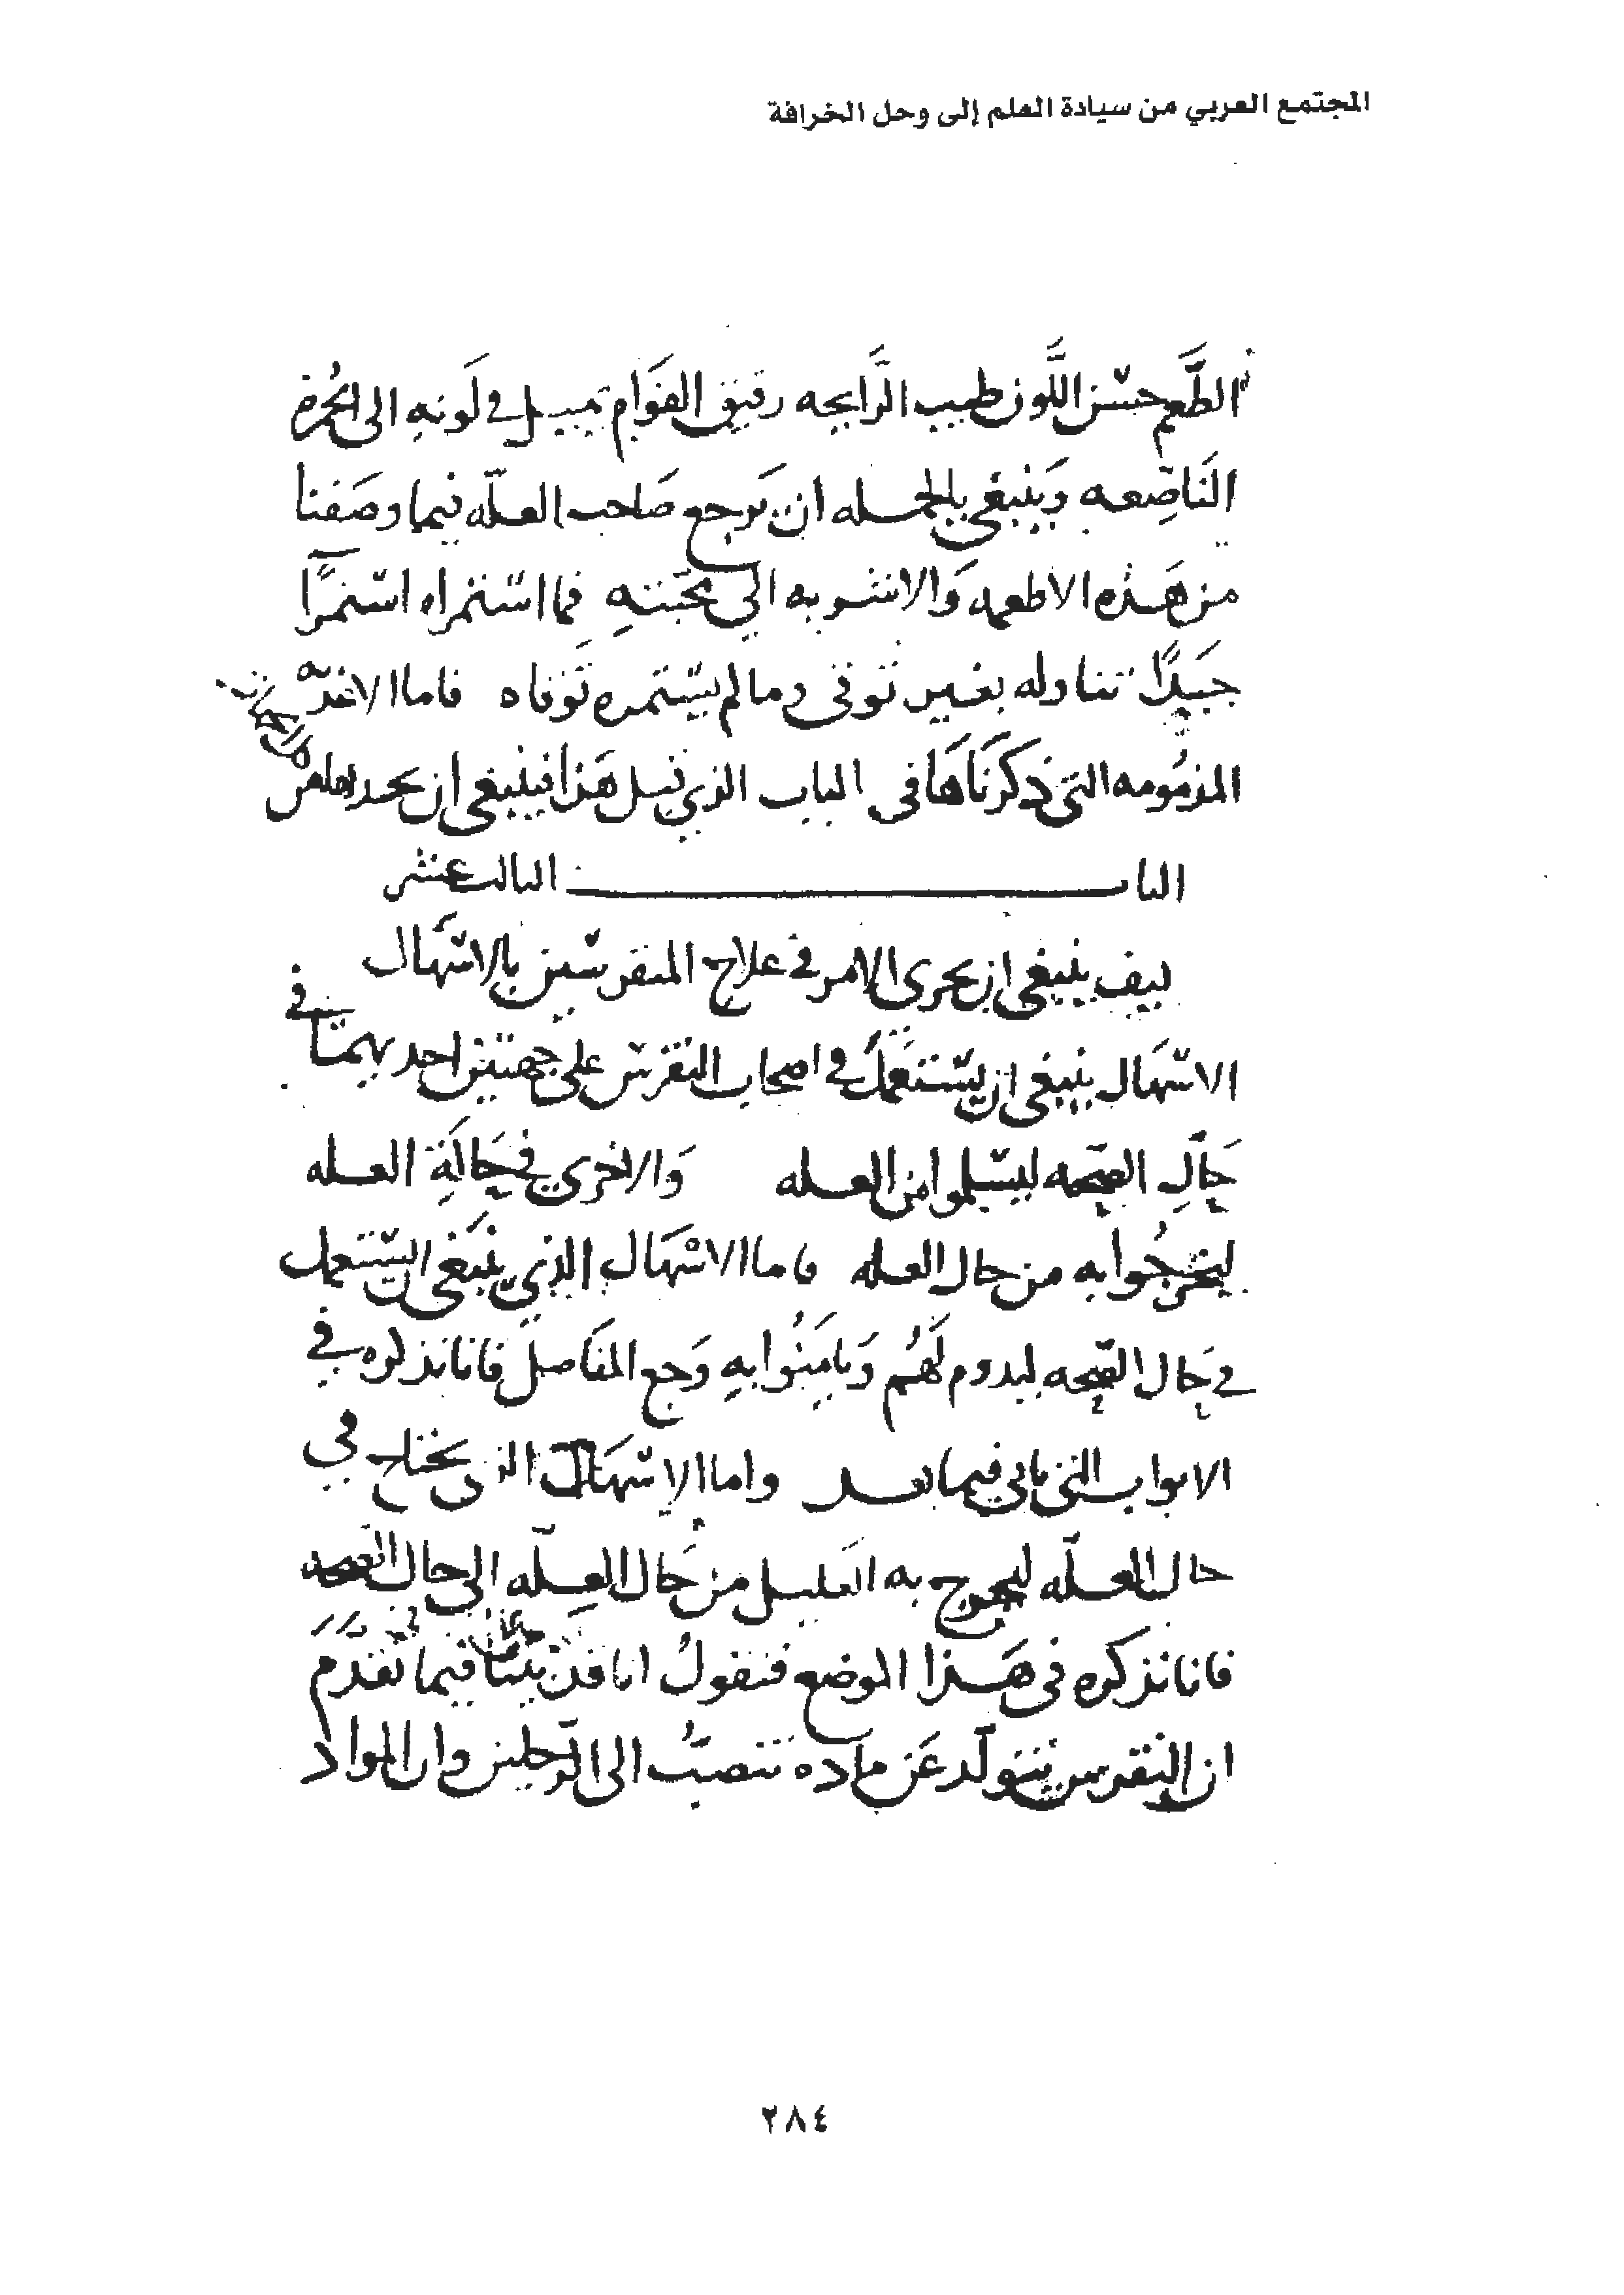 المجتمع العربي من سيادة العلم إلى وحل الخرافة
الطَّعم حسَن اللَّون طيب الرَّايحه رقيق القوَام يميل في لَونهِ الى الحُمرة
النَاصِعه وَينبغى بالجمله ان يَرجع صَاحب العلّه فيما وصَفنا
من هَذه الاطعمه وَالاشربه الى محَبته فما استمراه استمرًا
جيدًا تناوله بغير توقى وما لم يستمره تَوقاه فاما الاغذيه
المذمُومه التى ذكرنَاهَا فى الباب الذي قبل هَذا فينبغى ان يحد
الباب الثالث عشر
كيف ينبغى ان يجرى الامر في علاج المنقرسين بالاسهَال
الاسهَال ينبغى ان يستعمَل في اصحاب النقرس على جهتين احديهما في
حَالِ الصحه ليسلموا من العله وَالاخرى في حَالَةِ العله
ليخرجُوا به من حال العله فاما الاسهَال الذي ينبَغى ان يستعمل
في حَال الصحه ليدوم لَهُم وَيامَنُوا بهِ وَجع المفَاصل فانا نذكره في
الابواب التي ياتي فيما بعد واما الاسهَال الذى يحتاج في
حال العلّه ليخرج به العليل من حَال العلّه الى حال الصحه
فانا نذكره فى هَذا الموضع فنقولُ انا قد بيّنّا فيما تقدَّمَ
ان النقرس يتولّد عَن ماده تنصبُّ الى الرّجلين وان المواد
٢٨٤